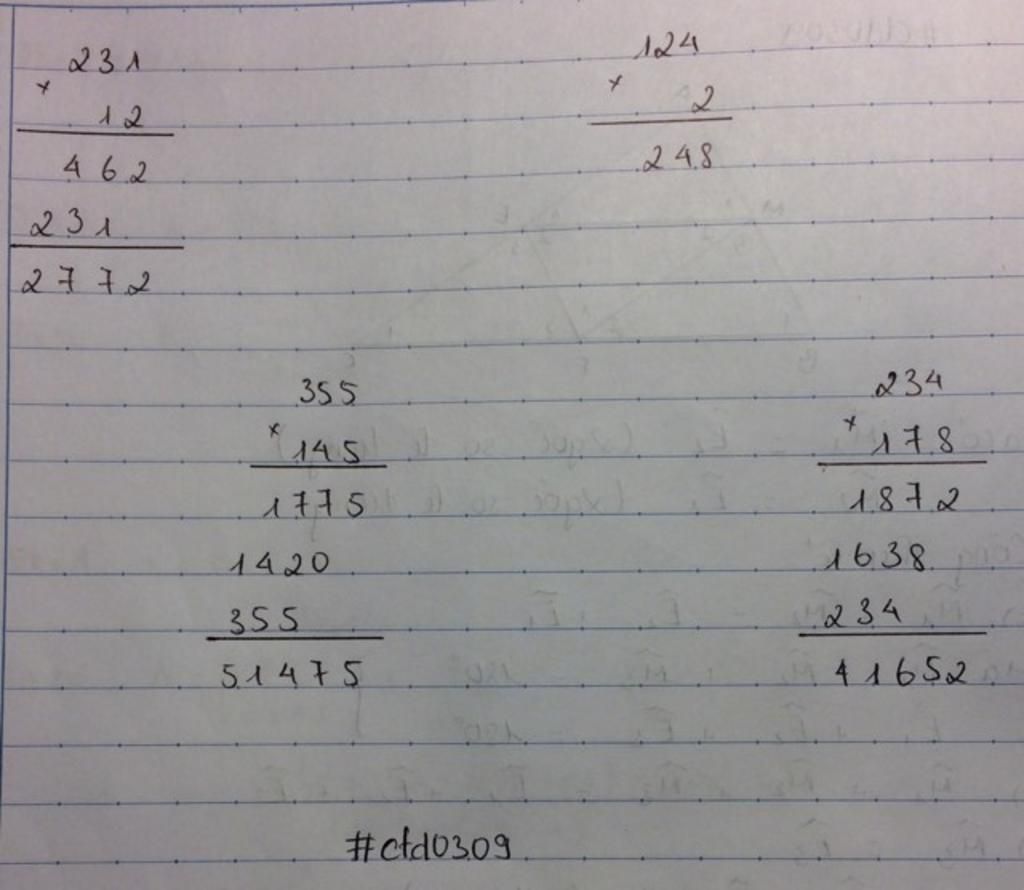 231
×
12
462
231
2772
124
×
2
248
355
×
145
1775
1420
355
51475
234
×
178
1872
1638
234
41652
#ctd0309